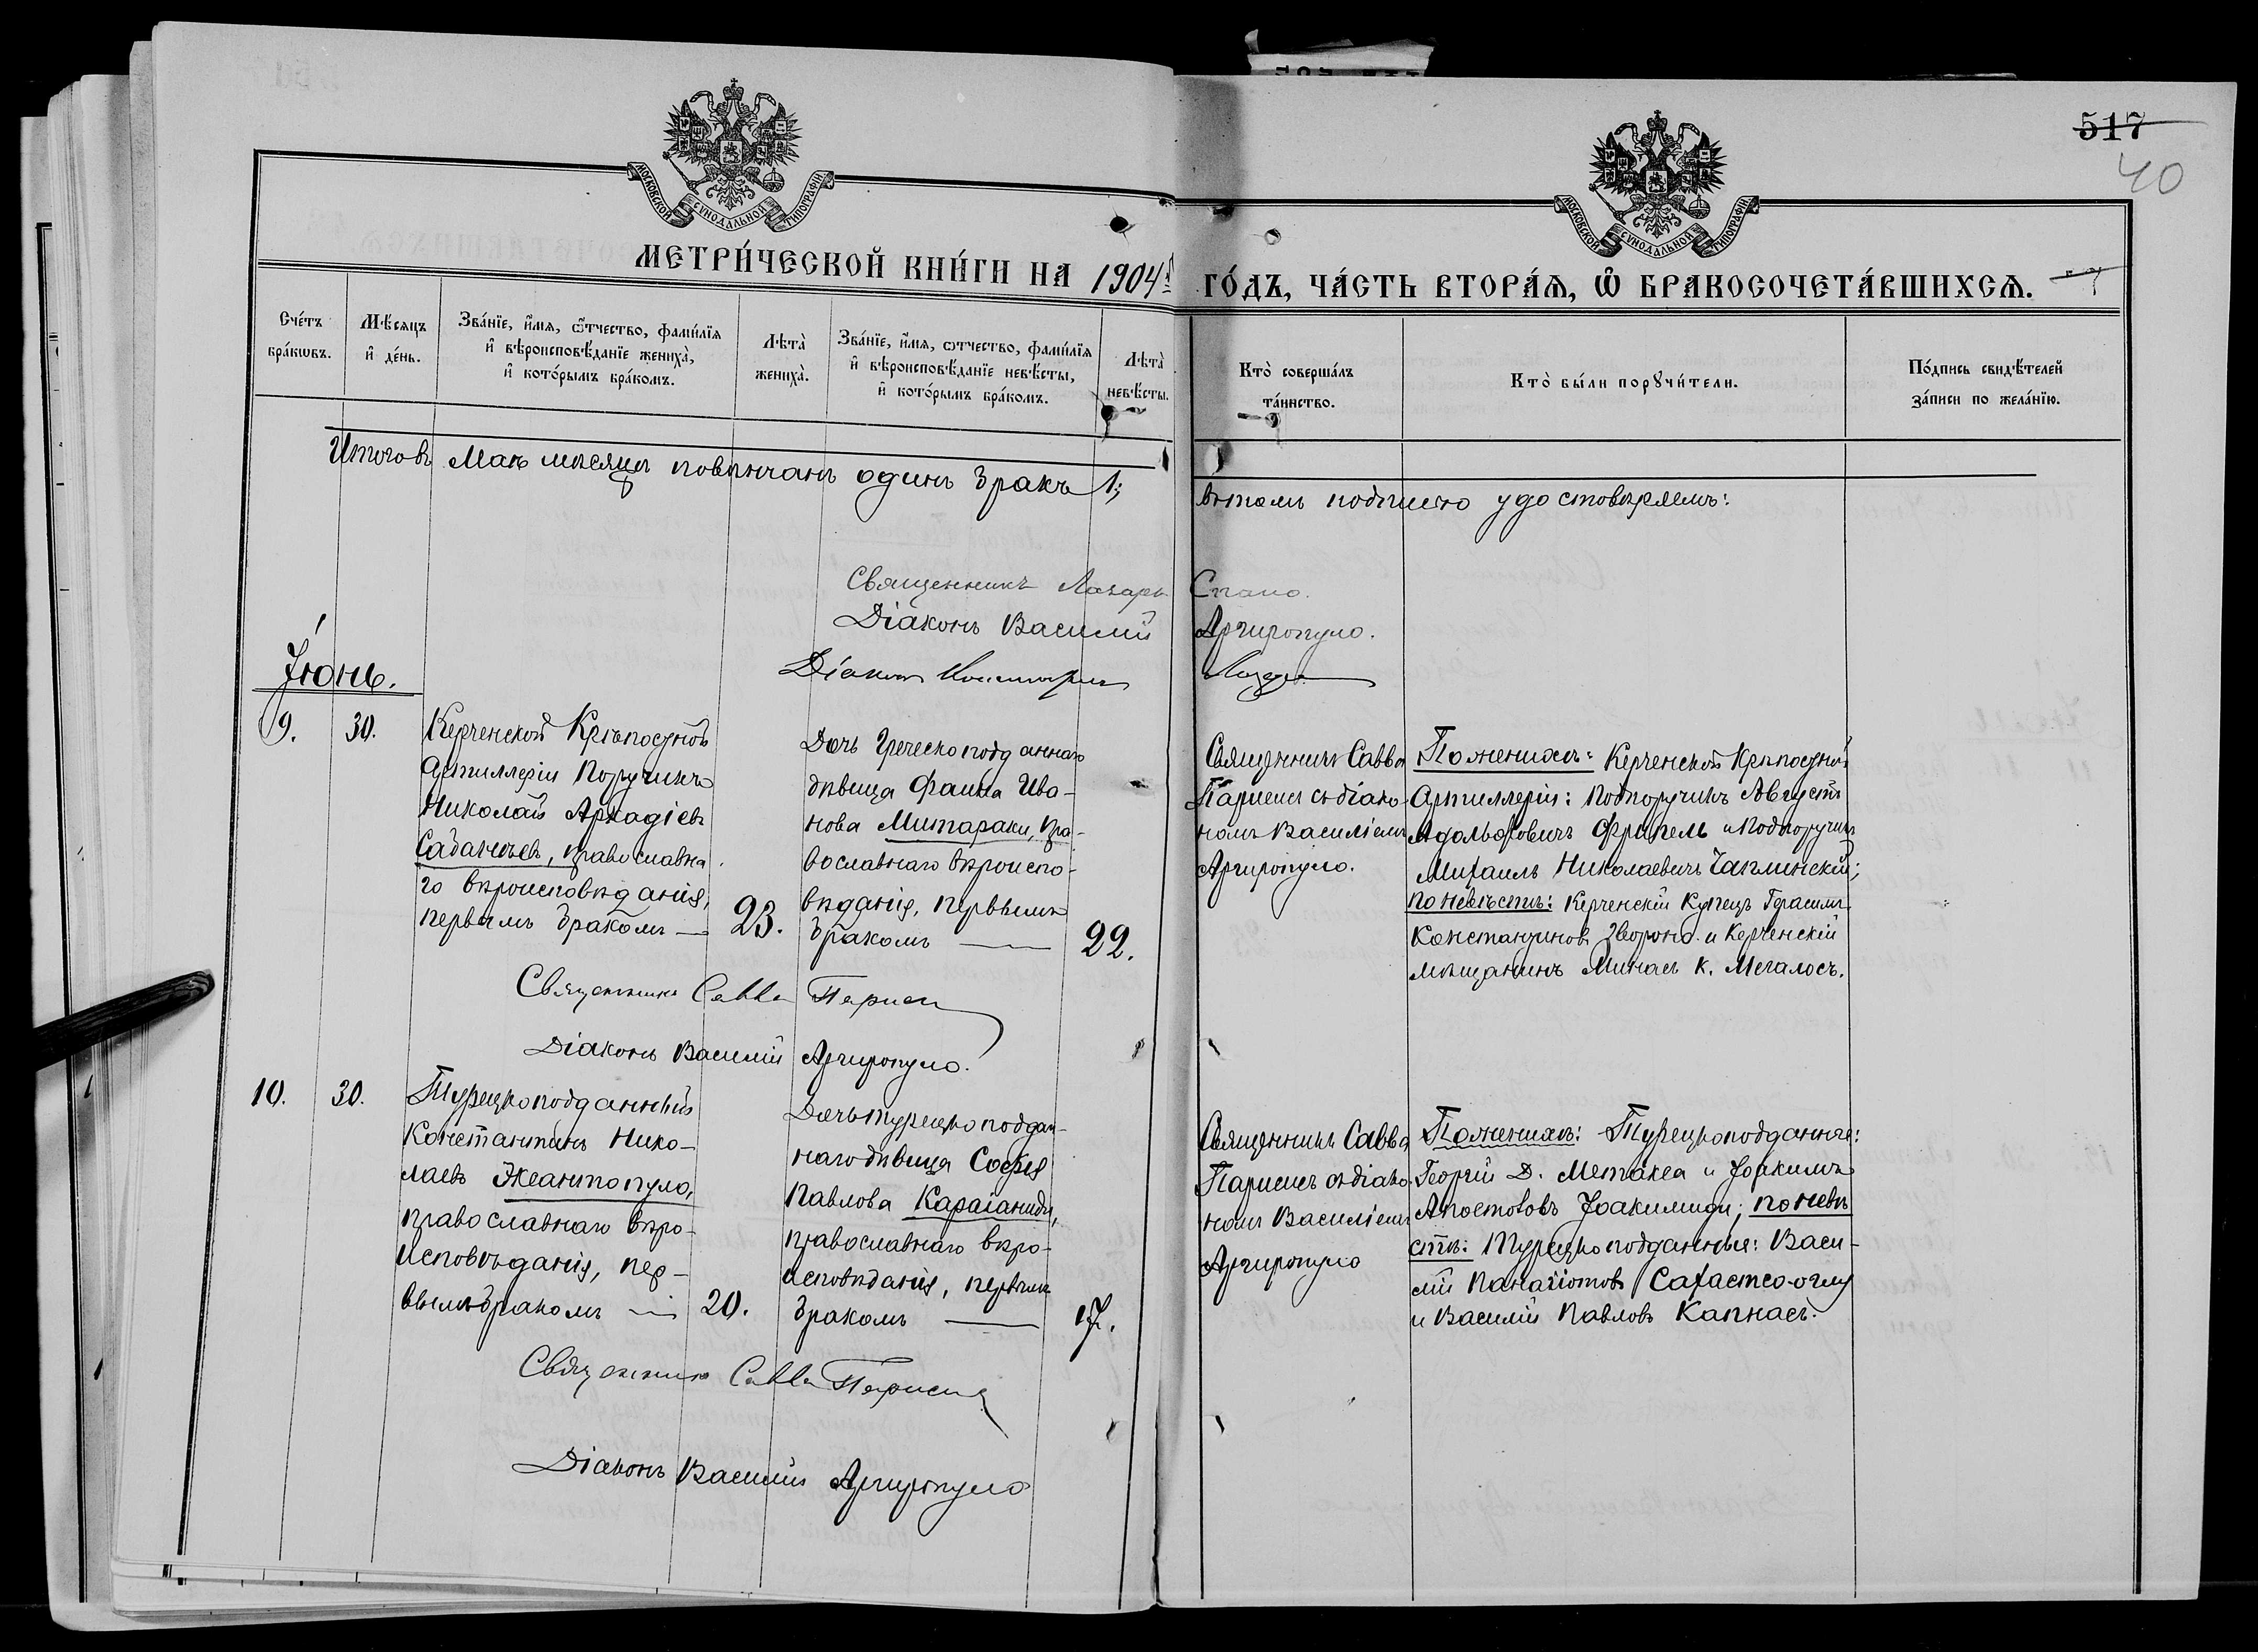 517
40
МОСКОВСКОЙ СѴНОДАЛЬНОЙ ТИПОГРАФІИ
МОСКОВСКОЙ СѴНОДАЛЬНОЙ ТИПОГРАФІИ
МЕТРИ́ЧЕСКОЙ КНИ́ГИ НА 1904й ГО́ДЪ, ЧА́СТЬ ВТОРА́Ѧ, Ѽ БРАКОСОЧЕТА́ВШИХСѦ.
Сче́тъ
бра́кѡвъ.
Мѣ́сяцъ
и҆ де́нь.
Зва́нїе, и҆́мѧ, ѻ҆́тчество, фами́лїѧ
и҆ вѣроисповѣ́данїе жениха̀,
и҆ кото́рымъ бра́комъ.
Лѣта̀
жениха̀.
Зва́нїе, и҆́мѧ, ѻ҆́тчество, фами́лїѧ
и҆ вѣроисповѣ́данїе невѣ́сты,
и҆ кото́рымъ бра́комъ.
Лѣта̀
невѣ́сты.
Кто̀ соверша́лъ
та́инство.
Кто̀ бы́ли порꙋчи́тели.
По́дпись свидѣ́телей
за́писи по жела́нїю.
Итого въ Маѣ мѣсяцѣ повѣнчанъ одинъ бракъ 1;
въ томъ подписью удостовѣряемъ:
Священникъ Лазарь Спано.
Діаконъ Василій Аргиропуло.
Діаконъ
Іюнь.
9.
30.
Керченской Крѣпостной
Артиллеріи Поручикъ
Николай Аркадіевъ
Сабанѣевъ, православна
го вѣроисповѣданія,
первымъ бракомъ —
23.
Дочь Греческо подданнаго
дѣвица Фаина Ива-
нова Митараки, пра-
вославнаго вѣроиспо-
вѣданія, первымъ
бракомъ —
22.
Священникъ Савва
Парисисъ съ діако-
номъ Василіемъ
Аргиропуло.
По женихѣ: Керченской Крѣпостной
Артиллеріи: Подпоручикъ Августъ
Адольфовичъ и Подпоручикъ
Михаилъ Николаевичъ Чаплинскій;
по невѣстѣ: Керченскій Купецъ Герасимъ
Константиновъ и Керченскій
мѣщанинъ Минасъ К. Мегалосъ.
Священникъ Савва Париси
Діаконъ Василій Аргиропуло.
10.
30.
Турецкоподданный
Константинъ Нико-
лаевъ Жеантопуло,
православнаго вѣро-
исповѣданія, пер-
вымъ бракомъ —
20.
Дочь турецко поддан-
наго дѣвица Софія
Павлова Караіаниди,
православнаго вѣро-
исповѣданія, первымъ
бракомъ —
17.
Священникъ Савва
Парисисъ съ діако-
номъ Василіемъ
Аргиропуло
По женихѣ: Турецкоподданные:
Георгій Д. Метакса и Іоакимъ
Апостоловъ Іоакимиди; по невѣ
стѣ: Турецко подданные: Васи-
лій Панаіотовъ
и Василій Павловъ Капнасъ.
Священникъ Савва Парисисъ
Діаконъ Василій Аргиропуло